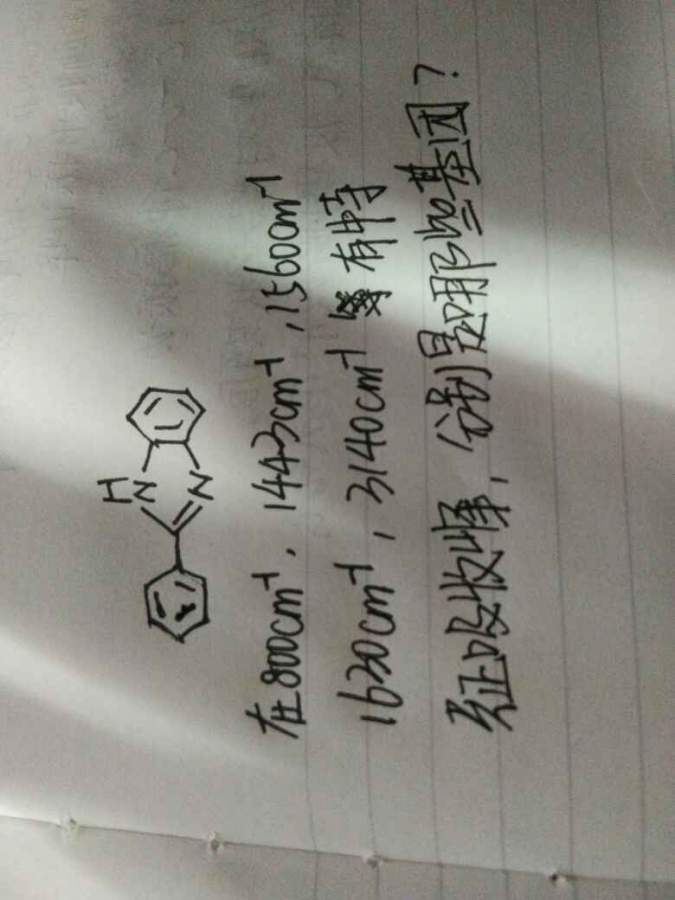 H
N
N
在800cm⁻¹、1443cm⁻¹,1560cm⁻¹
1620cm⁻¹,3140cm⁻¹等有特
征吸收峰,分别是那些基团?